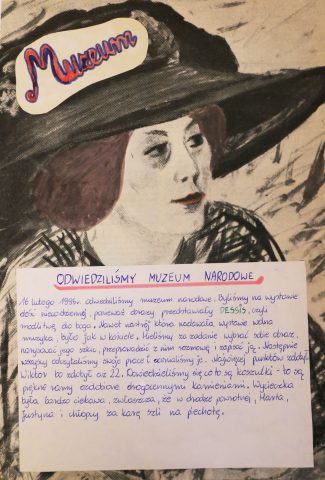 Muzeum
ODWIEDZILIŚMY MUZEUM NARODOWE
16 lutego 1995r. odwiedziliśmy muzeum narodowe. Byliśmy na wystawie
dość niecodziennej, ponieważ obrazy przedstawiały DESSIS, czyli
modlitwę do boga. Nawet nastrój który nadawała wystawie wolna
muzyka, było jak w kościele. Mieliśmy za zadanie wybrać sobie obraz,
narysować jego szkic, przeprowadzić z nim rozmowę i zapisać ją. Następnie
wszyscy odczytaliśmy swoje prace i ocenialiśmy je. Najwięcej punktów zdobył
Wiktor bo zdobył aż 22. Dowiedzieliśmy się co to są koszulki - to są
piękne ramy ozdobione drogocennymi kamieniami. Wycieczka
była bardzo ciekawa, zwłaszcza, że w drodze powrotnej, Marta,
Justyna i chłopcy za karę szli na piechotę.